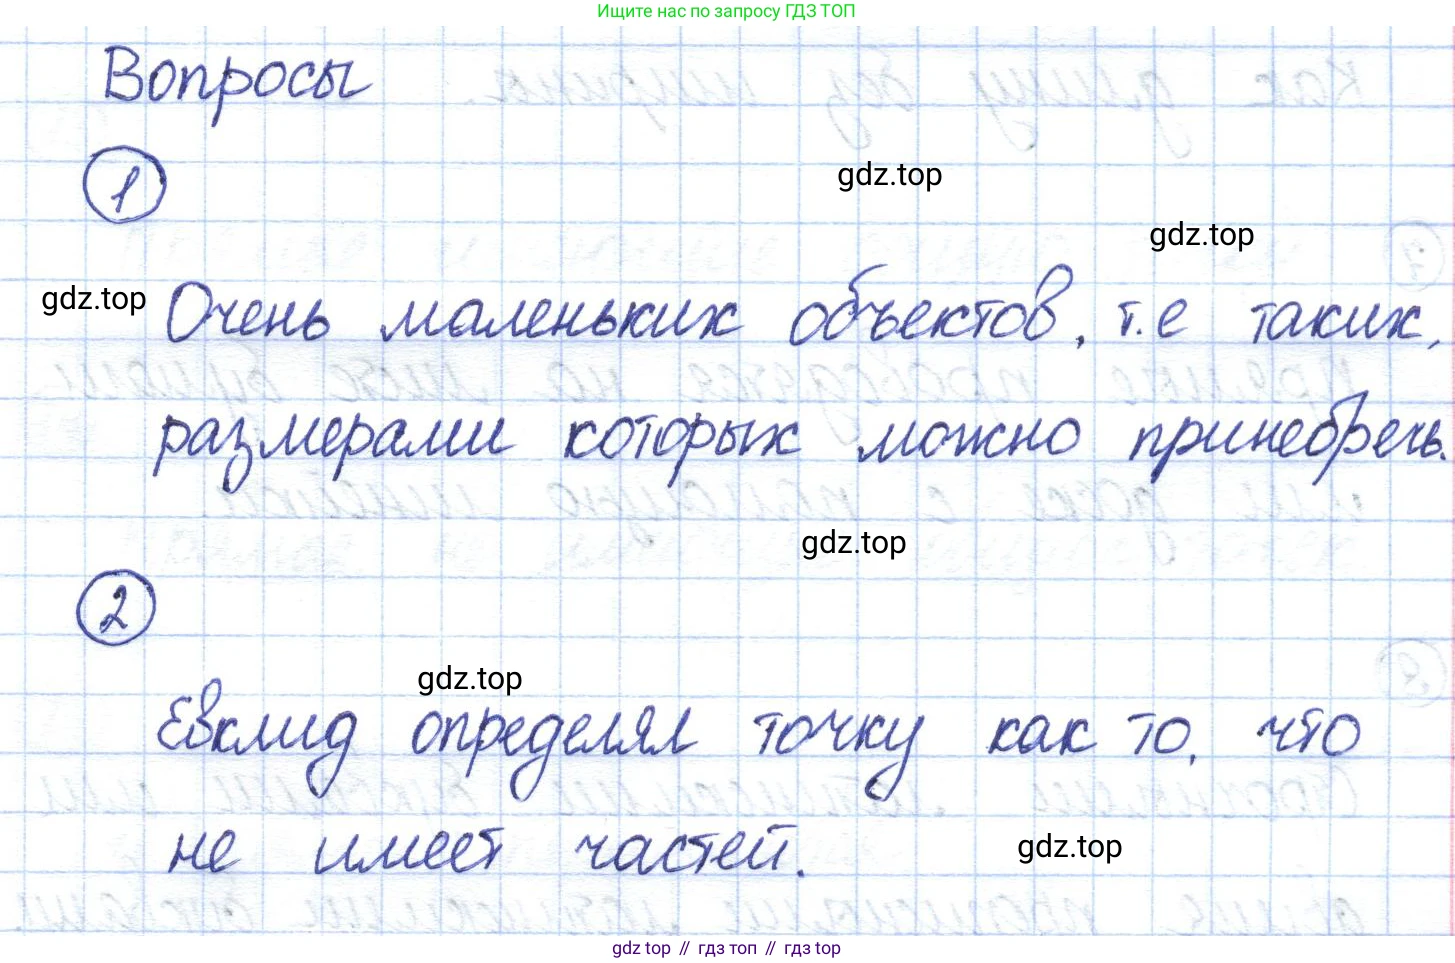 Ищите нас по запросу ГДЗ ТОП
Вопросы
1
gdz.top
gdz.top
gdz.top
Очень маленьких объектов, т.е таких,
размерами которых можно принебречь.
gdz.top
2
gdz.top
Евклид определял точку как то, что
не имеет частей.
gdz.top
gdz top // гдз топ // гдз top